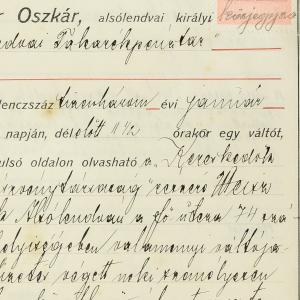 r Oszkár, alsólendvai királyi közjegyző
ndvai Takarékpénztár"
lenczszáz tizenhárom évi január
napján, délelőtt 11 1/2 órakor egy váltót,
ulsó oldalon olvasható a „Kereskedők
részvénytársaság" czégű
Alsólendván a fő utcza 74 szá
helyiségében valamennyi váltója
személyesen